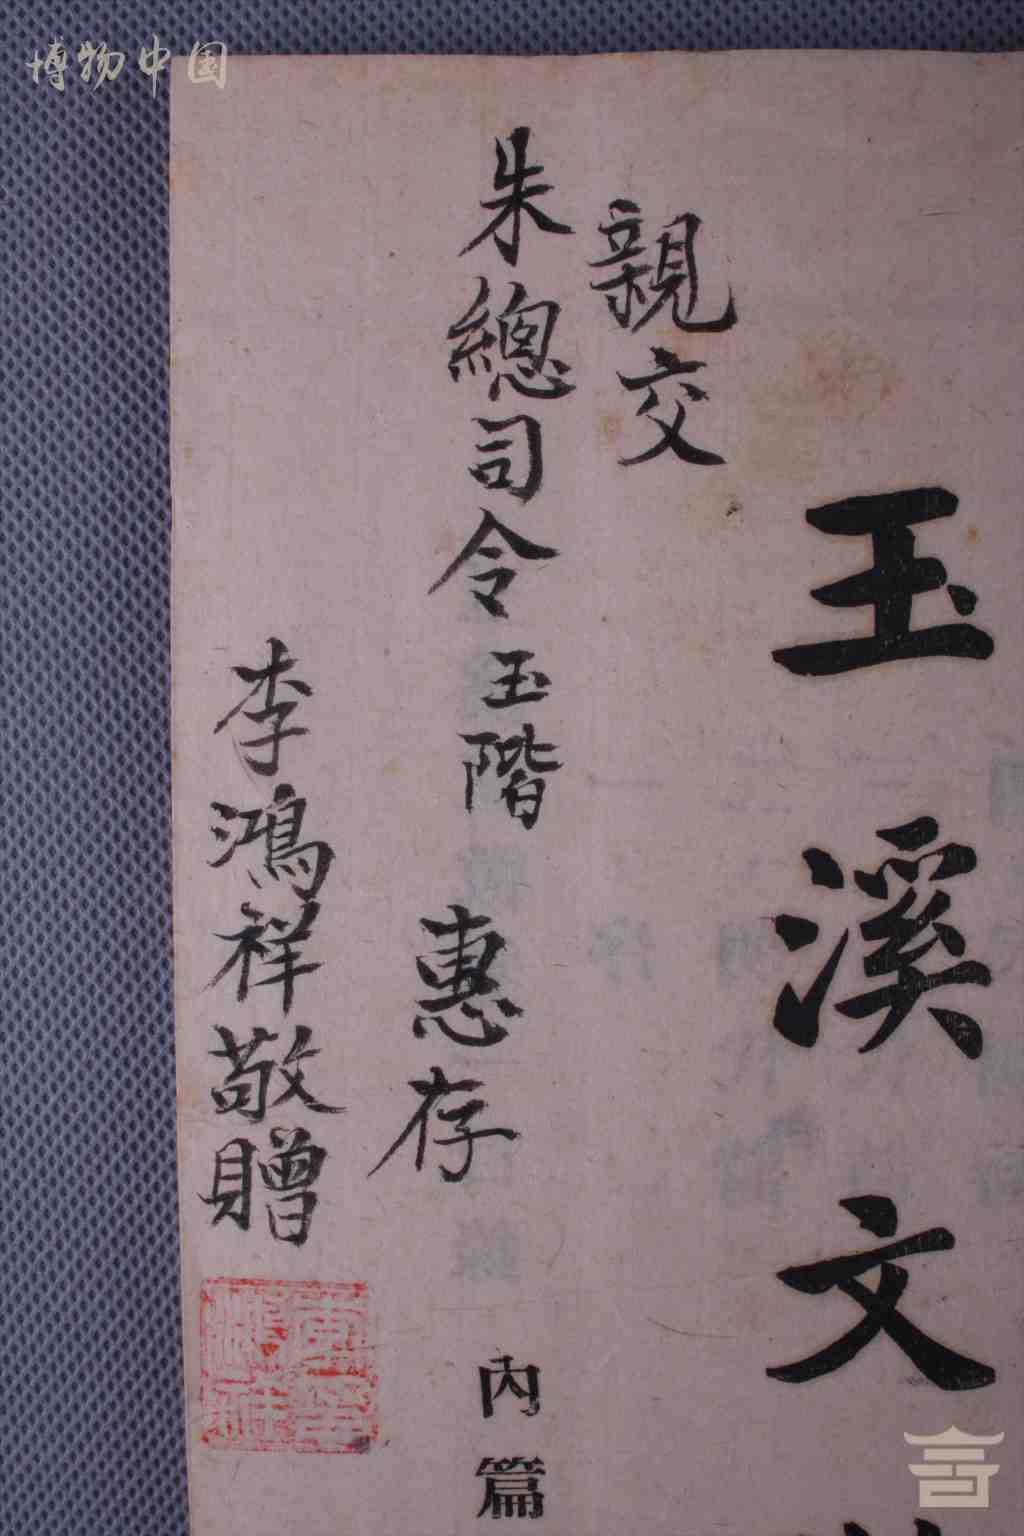 博物中国
玉溪文
親交
朱總司令玉階 惠存
内篇
李鴻祥敬贈